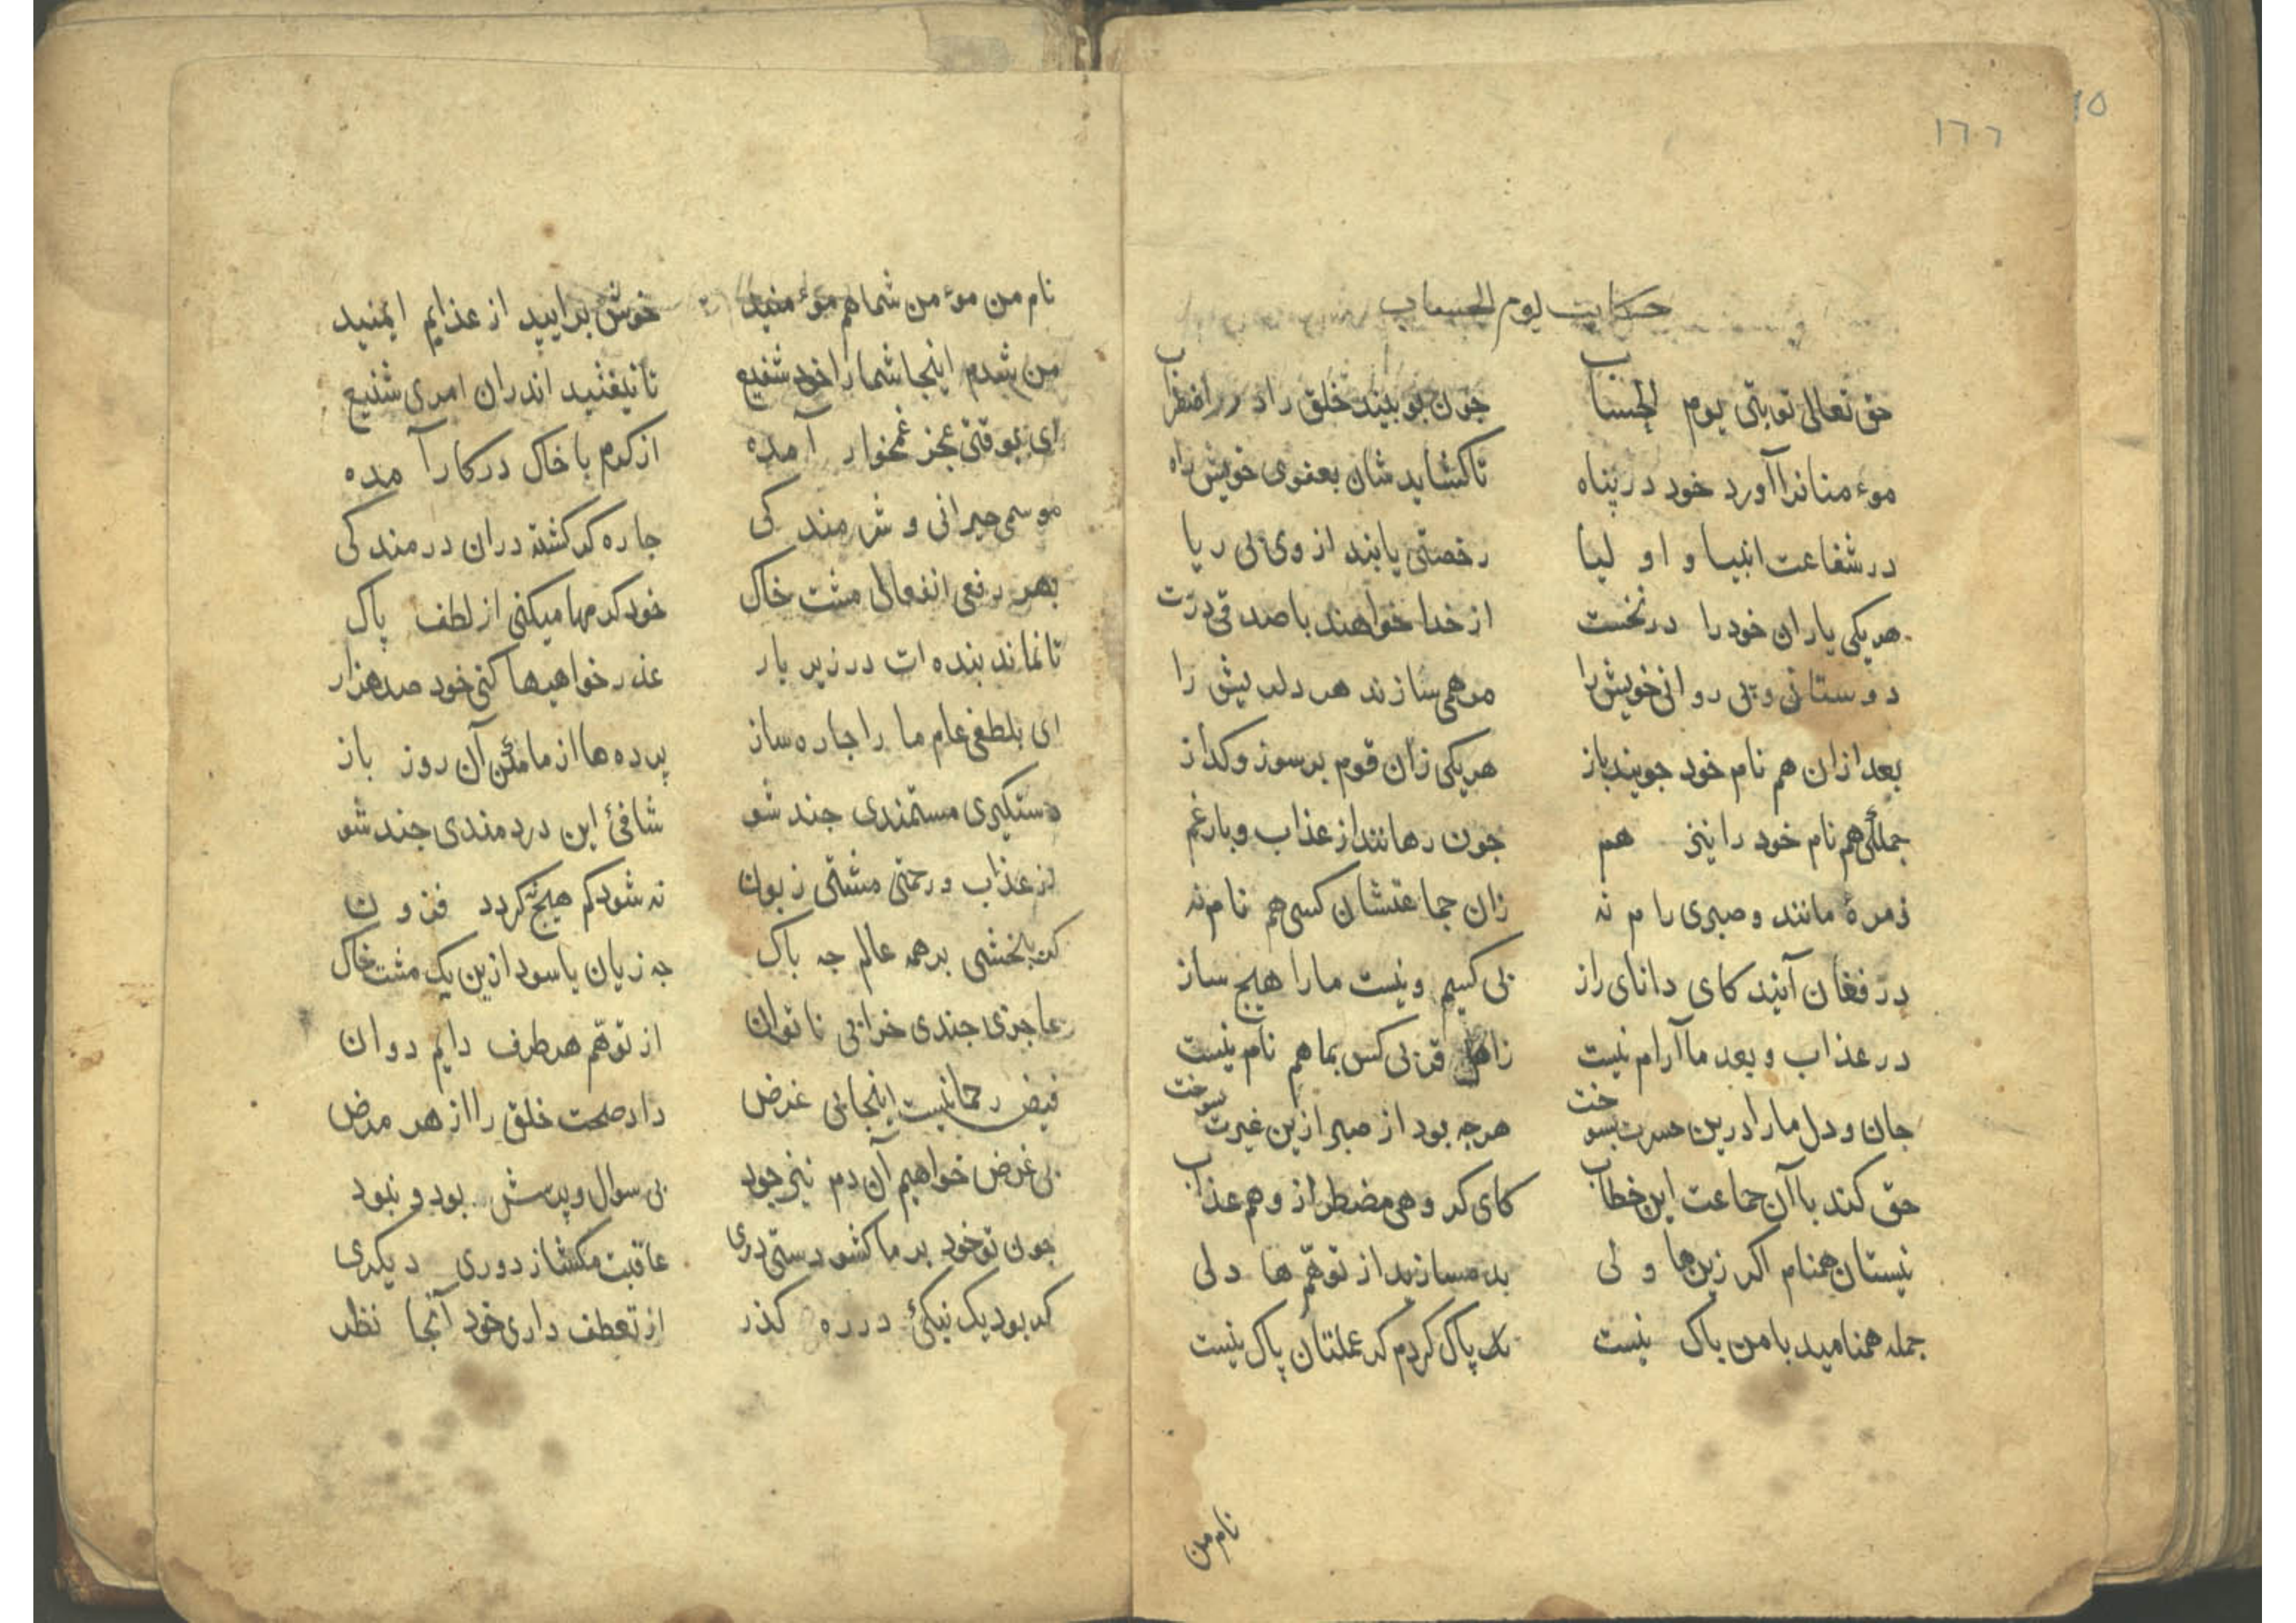 ١٥
١٦٦
حکایت یوم الحساب
حق تعالی توبتی یوم الحساب جون بو بیند خلق را در اضطراب
موءمنانرا آورد خود در پناه تا کشاید شان بعفوی خویش راه
در شفاعت انبیا و اولیا رخصتی یابند از وی بی ریا
هر یکی یاران خود را در نخست از خدا خواهند با صدقی درت
دوستان و پی روانی خویش را مرهمی سازند هر دلریش را
بعد ازان هم نام خود جویند باز هر یکی زان قوم بر سوز و کداز
جملکی هم نام خود را نیز هم جون رهانند از عذاب و بار غم
زمرهٔ مانند و صبری رام نه زان جماعتشان کسی هم نام نه
در فغان آیند کای دانای راز بی کسیم و نیست ما را هیج ساز
در عذاب و بعد ما آرام نیست قربی کس بما هم نام نیست
جان و دل ما را درین حسرت بسوخت هرجه بود از صبر ازین غیرت بسوخت
حق کند با آن جماعت این خطاب کای کروهی مضطر از وهم عذاب
نیستان همنام اکر زینها ولی بد مسازید از توهّم ها دلی
جمله همنامید با من باک نیست پاک کردم کر عملتان پاک نیست
نام من
نام من موءمن شما هم موءمنید خوش برایید از عذابم ایمنید
من شدم اینجا شما را خود شفیع تا نیفتید اندران امری شنیع
ای بوقتی عجز غمخوار آمده از کرم با خاک در کار آمده
موسمی حیرانی و شرمندکی جاره کر کشته دران درمندکی
بهر رفعی انفعالی مشت خاک خود کرمها میکنی از لطف پاک
تا نماند بنده ات در زیر بار عذر خواهیها کنی خود صد هزار
ای بلطفی عام ما را جاره ساز پرده ها از ما مکن آن روز باز
دستکیری مستمندی جند شو شافئ این دردمندی جند شو
از عذاب و رحمتی مشتی زبون نه شود کم هیج نه کردد فزون
کت بخشی بر همه عالم جه باک جه زیان یا سود ازین یک مشت خاک
عاجزی جندی خرابی ناتوان از توهّم هر طرف دایم دوان
فیض رحمانیست اینجا بی غرض داد صحت خلق را از هر مرض
بی غرض خواهیم آن دم نیز جود بی سوال و پرسش بود و نبود
جون تو خود بر ما کشودستی دری عاقبت مکشا ز دوری دیکری
کر بود یک نیکئ در ره کذر از تعطف داری خود آنجا نظر